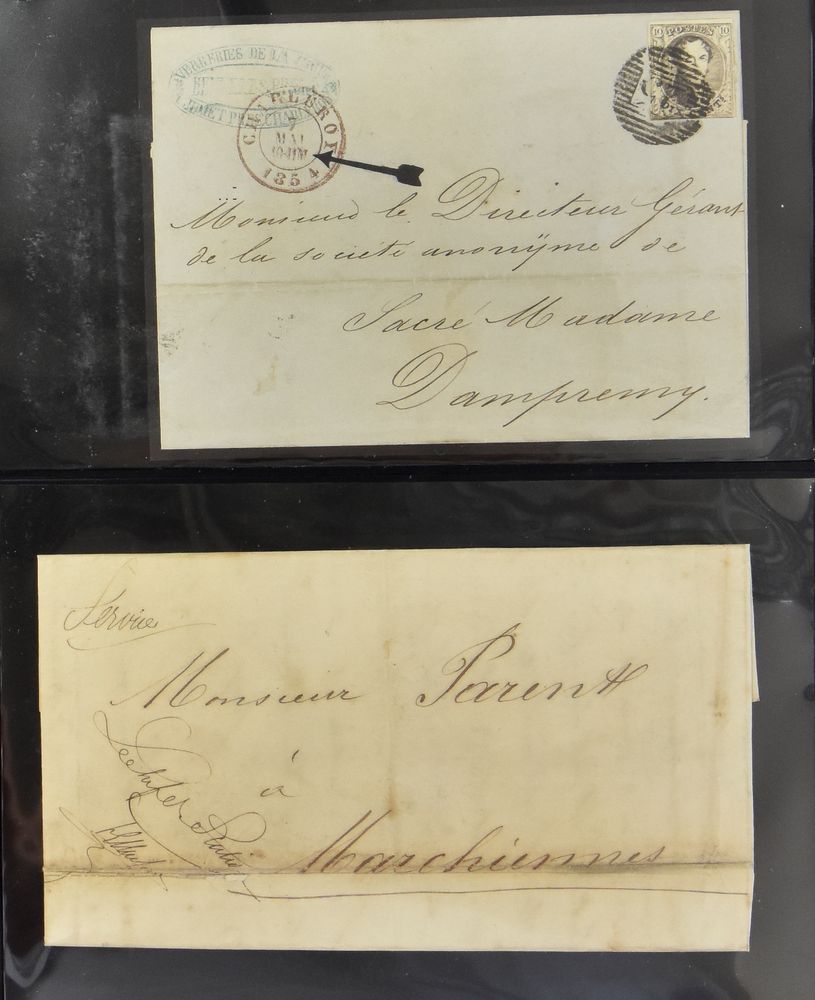 VERRERIES DE LA
JUMET PRÈS CHARLEROI
CHARLEROI
7
MAI
1854
10 POSTES 10
Monsieur le Directeur Gérant
de la société anonÿme de
Sacré Madame
Dampremy.
Service
Monsieur Parent
à
Marchiennes